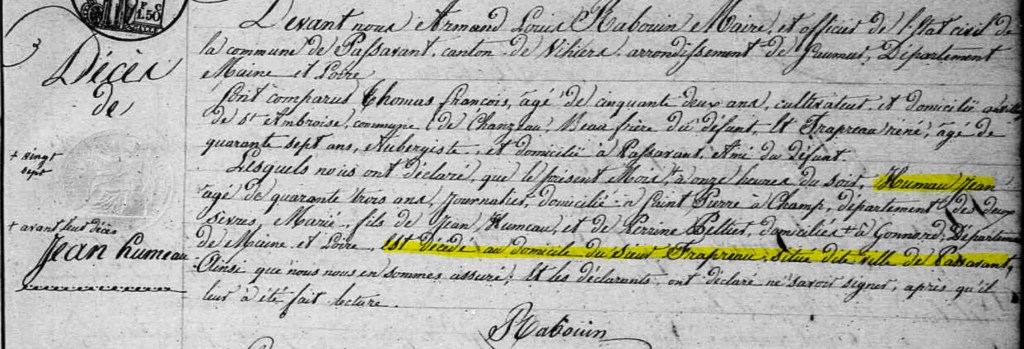 Devant nous Armand Louis Rabouin Maire, et officier de l'état civil de
la commune de Passavant, canton de Vihiers, arrondissement de Saumur, Département
Maine et Loire
Sont comparus Thomas françois, agé de cinquante deux ans, cultivateur, et domicilié
de St Ambroise, commune de Chanzeau, Beau frère du défunt, Et Frapreau réné, agé de
quarante sept ans, Aubergiste, et domicilié à Passavant, Ami du Défunt.
Lesquels nous ont déclaré, que le présent Mois, + à onze heures du soir, Humau Jean
agé de quarante trois ans, Journalier, domicilié à Saint Pierre à Champ, département des deux
sevres, Marié, fils de Jean Humeau, et de Perrine Pellier, domiciliés + à Gonnord, Départemen
de Maine et Loire, est décédé au domicile du Sieur Frapreau, situé de la ville de Passavant,
Ainsi que nous nous en sommes assuré, Et les déclarants, ont déclaré ne savoir signer, après qu'il
leur à été fait lecture.
Rabouin
1 F 50 C
Décès
de
+ vingt
sept
+ avant leur décès
Jean humeau